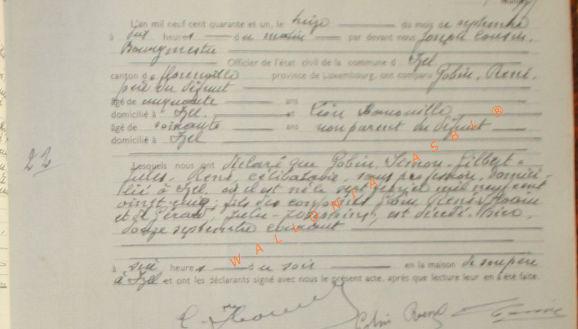 L'an mil neuf cent quarante et un, le treize du mois de septembre
à dix heures du matin par devant nous Joseph
Bourgmestre Officier de l'état civil de la commune d' Izel
canton de Florenville province de Luxembourg, ont comparu Gobin, René,
père du défunt
âgé de cinquante ans
domicilié à Izel. et Léon
âgé de soixante ans non parent du défunt
domicilié à Izel
23
Lesquels nous ont déclaré que Gobin, Simon-Gilbert-
Jules-René, célibataire, sans profession, domici-
lié à Izel, où il est né le sept mil neuf cent
vingt cinq, fils des comparant Gobin René
et de Gérard, Julie-Joséphine, est décédé hier,
douze septembre courant
à heures du soir en la maison de son père
à Izel et ont les déclarants signé avec nous le présent acte, après que lecture leur en a été faite.
Gobin René
WALLONIA ASBL ®